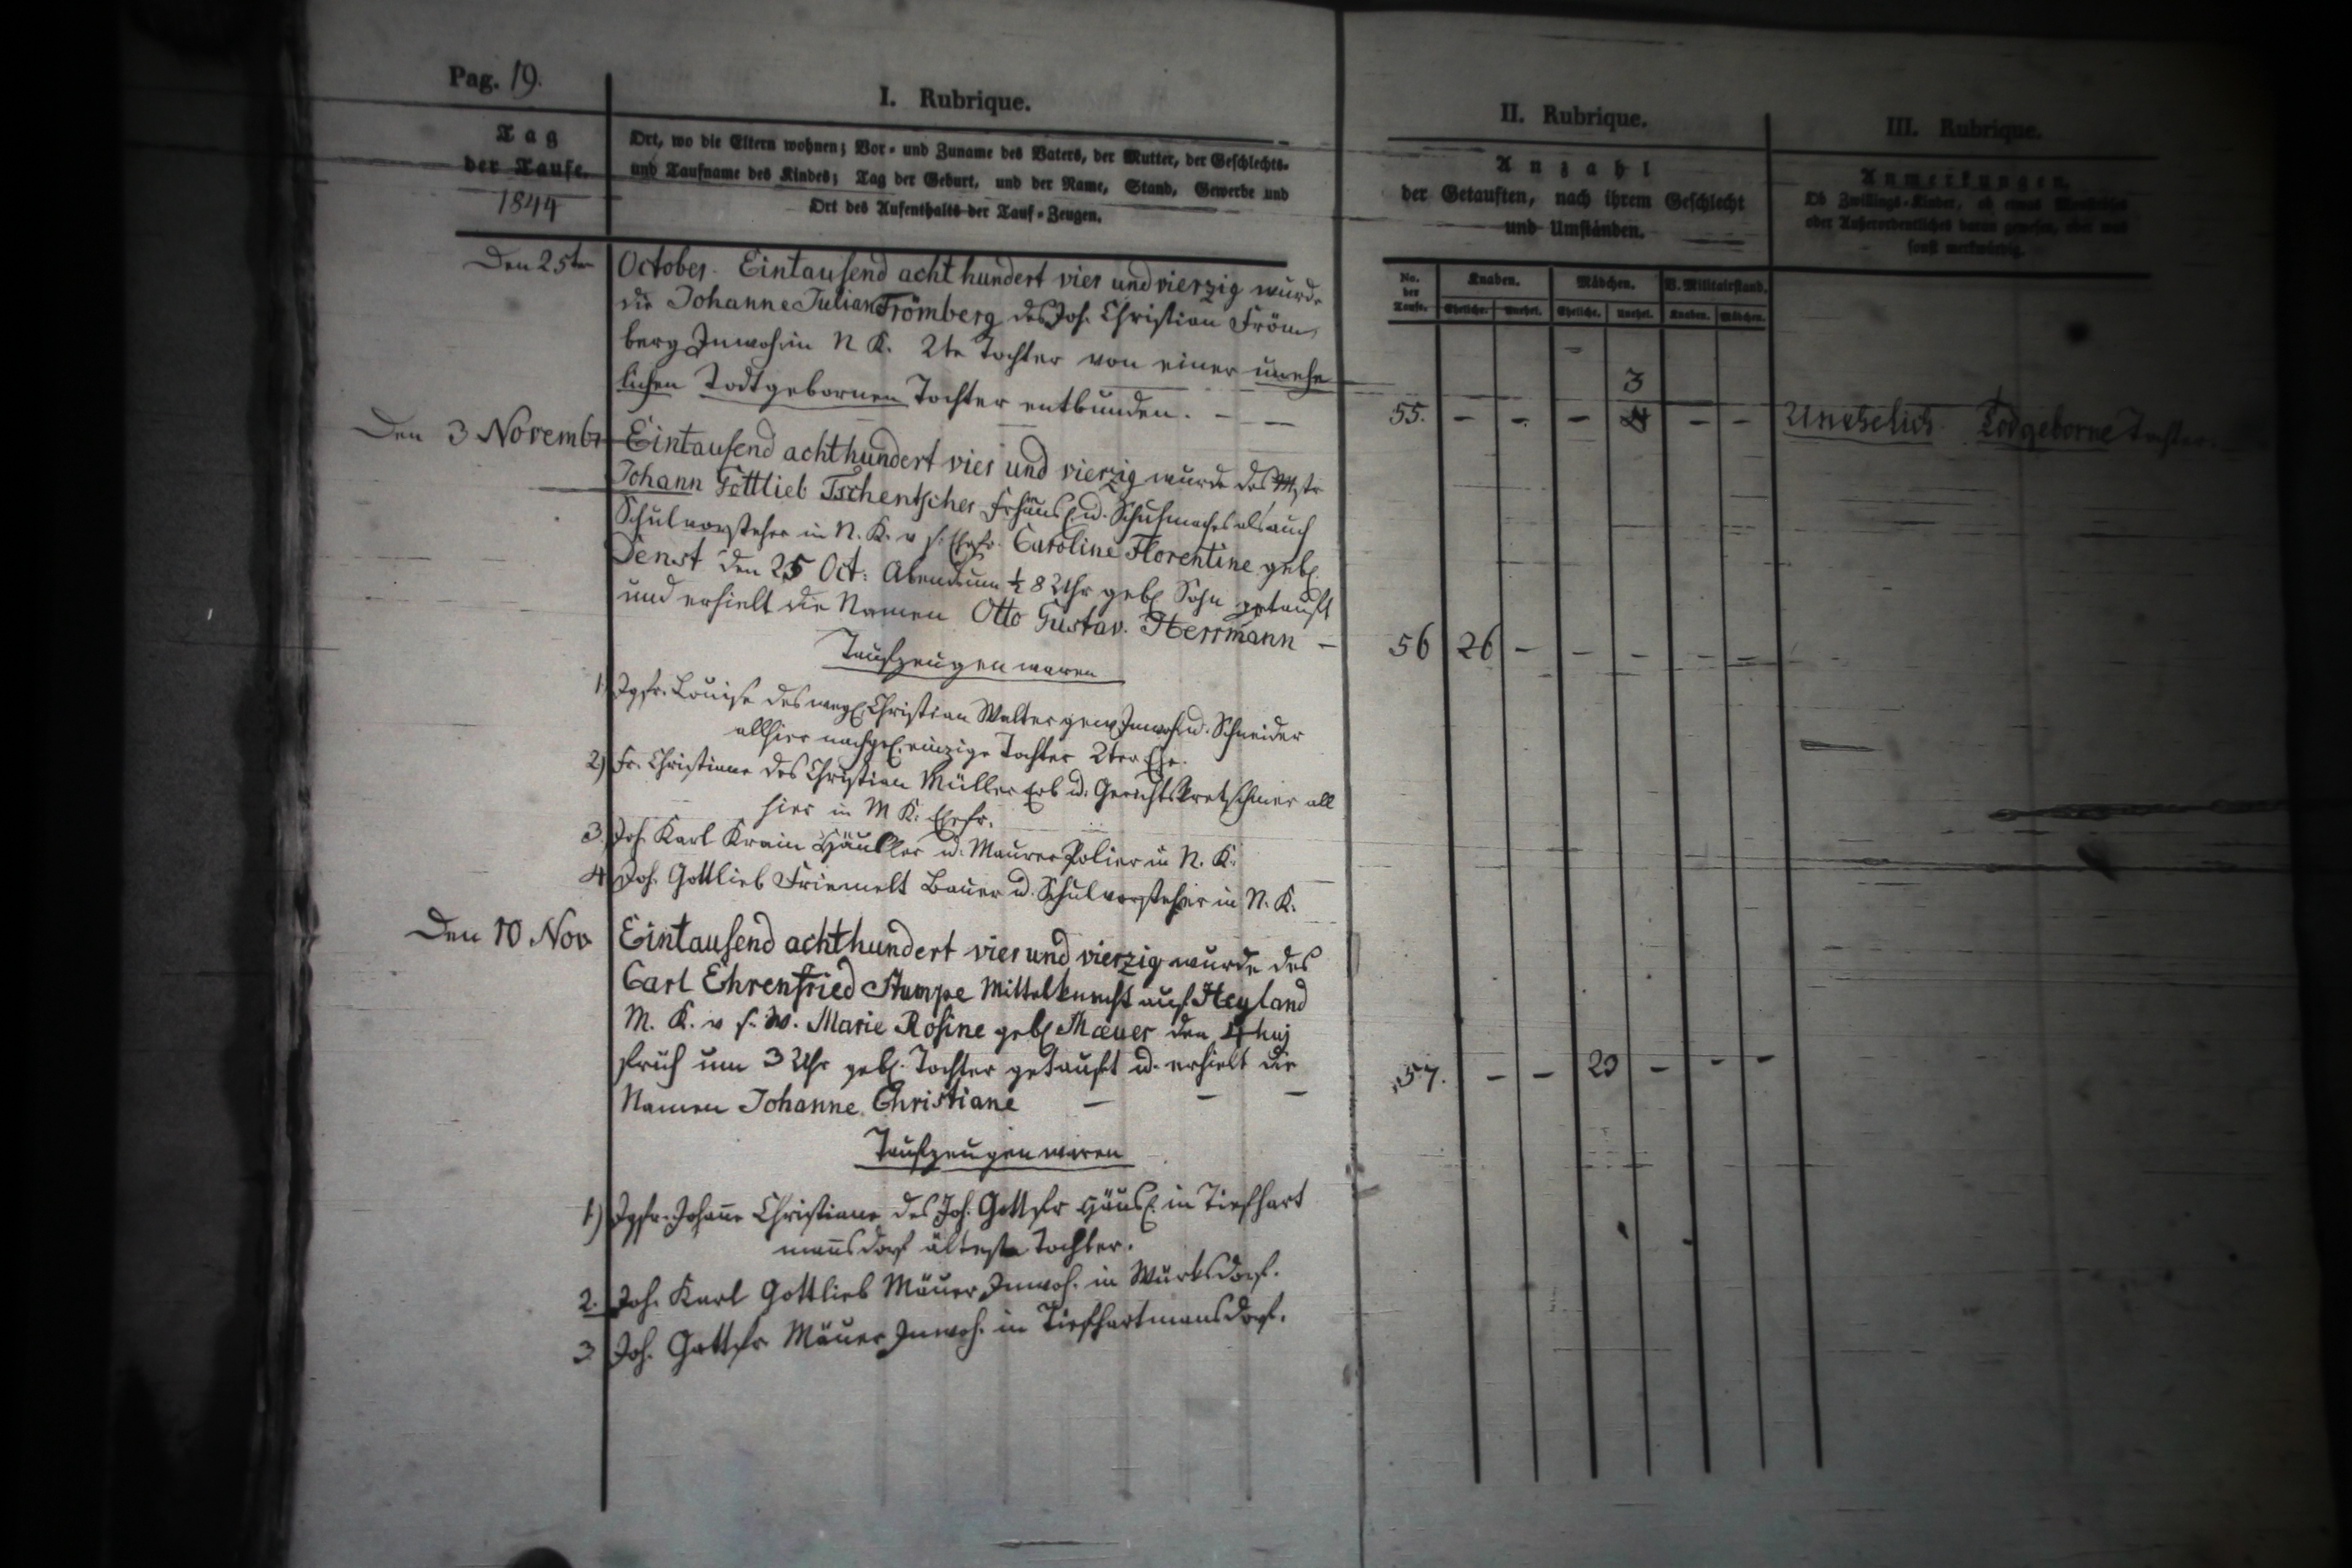 Pag. 19.
I. Rubrique.
Tag
der Taufe.
1844
Ort, wo die Eltern wohnen; Vor- und Zuname des Vaters, der Mutter, der Geschlechts-
und Taufname des Kindes; Tag der Geburt, und der Name, Stand, Gewerbe und
Ort des Aufenthalts der Tauf-Zeugen.
II. Rubrique.
Anzahl
der Getauften, nach ihrem Geschlecht
und Umständen.
III. Rubrique.
Anmerkungen.
Ob Zwillings-Kinder, ob etwas
oder Außerordentliches daran gewesen, oder was
sonst merkwürdig.
No. der Taufe. Knaben. Mädchen. V. Militairstand.
Eheliche. Unehel. Eheliche. Unehel. Knaben. Mädchen.
Den 25ten October. Eintausend acht hundert vier und vierzig wurde
die Johanne Julian Frömberg des Joh. Christian Fröm
berg Inwoh. in N K. 2te Tochter von einer unehe
lichen Todtgebornen Tochter entbunden. - -
3
55. - - - 4 - - Unehelich Todgeborne Tochter.
Den 3 Novembr Eintausend achthundert vier und vierzig wurde des Mstr
Johann Gottlieb Tschentscher Frhäusl. u. Schuhmacher als auch
Schulvorsteher in N. K. v s. Ehefr. Caroline Florentine geb.
Denst den 25 Oct: Abends um ½ 8 Uhr geb. Sohn getauft
und erhielt die Namen Otto Gustav. Herrmann -
56 26 - - - - -
Taufzeugen waren
1) Jgfr. Louise des weyl. Christian Walter gew. Inwoh. u. Schneider
allhier nachgel. einzige Tochter 2ter Ehe.
2) Fr. Christiane des Christian Müller Erb u. Gerichtskretschmer all
hier in M K. Ehefr.
3. Joh. Karl Krain Häusler u. Maurer Polier in N. K.
4. Joh. Gottlieb Friemelt Bauer u. Schulvorsteher in N. K.
Den 10 Nov Eintausend achthundert vier und vierzig wurde des
Carl Ehrenfried Stumpe Mittelknecht auf Heyland
M. K. v s. W. Marie Rosine geb. Mäuer den 4 huj
früh um 3 Uhr geb. Tochter getauft u. erhielt die
Namen Johanne Christiane - - -
57. - - 29 - - -
Taufzeugen waren
1) Jgfr. Johanne Christiane des Joh. Gottfr Häusl. in Tiefhart
mannsdorf älteste Tochter.
2. Joh. Karl Gottlieb Mäuer Inwoh. in Würksdorf.
3 Joh. Gottfr Mäuer Inwoh. in Tiefhartmansdorf.